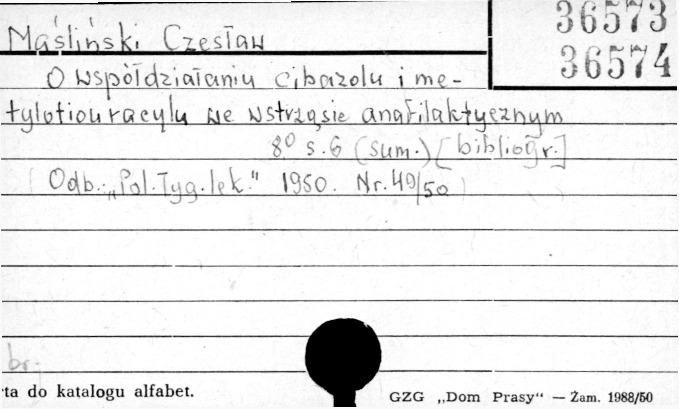 36573
36574
Maśliński Czesław
O współdziałaniu cibazolu i me-
tylotiouracylu we wstrząsie anafilaktycznym
8° s.6 (sum.) [bibliogr.]
Odb.: „Pol. Tyg. lek." 1950. Nr. 49/50
br.
ta do katalogu alfabet.
GZG „Dom Prasy“ — Żam. 1988/50